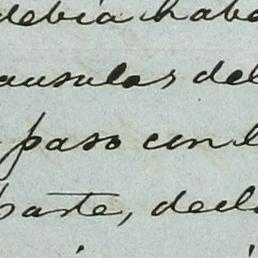 debia habe
ausulas del
paso con l
parte, decla